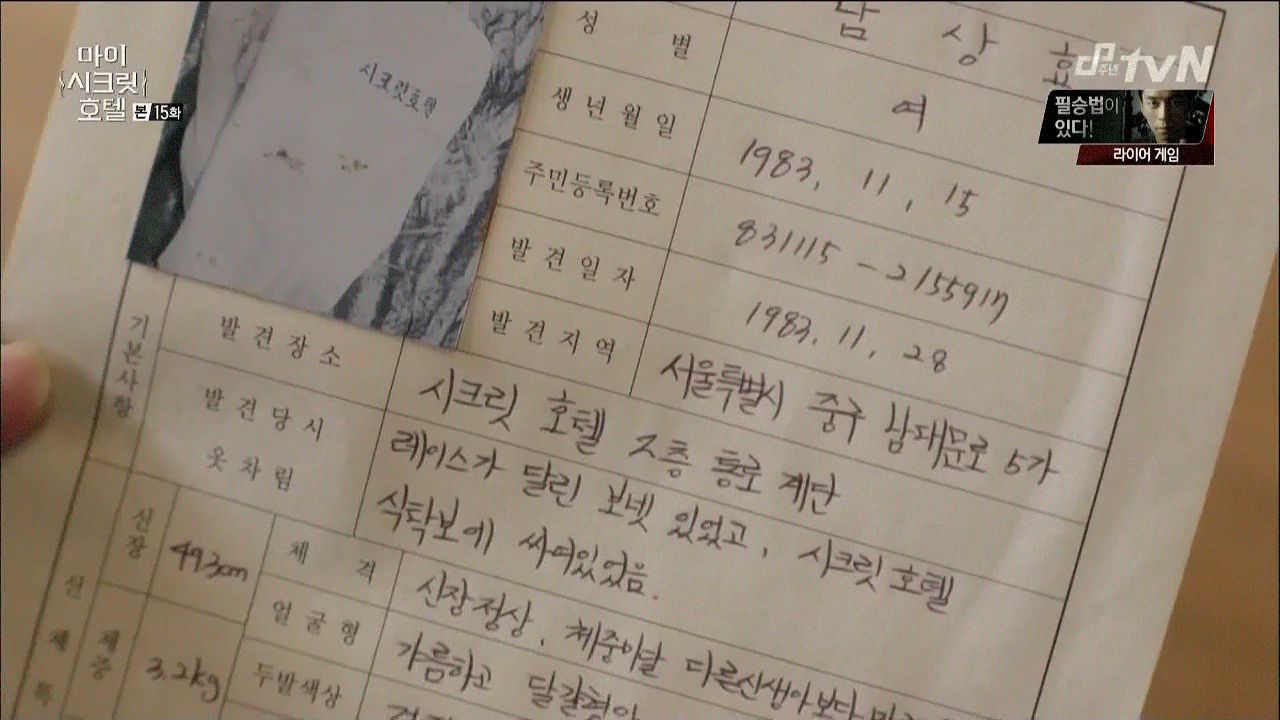 마이
시크릿
호텔 본 15화
주년 tvN
필승법이
있다!
라이어 게임
시크릿호텔
남 상
성 별 여
생 년 월 일 1983. 11. 15
주민등록번호 831115 - 2155917
발 견 일 자 1983. 11. 28
발 견 지 역 서울특별시 중구 남대문로 5가
기본사항
발 견 장 소 시크릿 호텔 2층 통로 계단
발 견 당 시
옷 차 림
레이스가 달린 보넷 있었고, 시크릿 호텔
식탁보에 싸여있었음.
신장 49.3cm 체 격 신장정상, 체중미달 다른신생아보다
얼굴형 갸름하고 달걀형
체중 3.2kg 두발색상
신 체 특